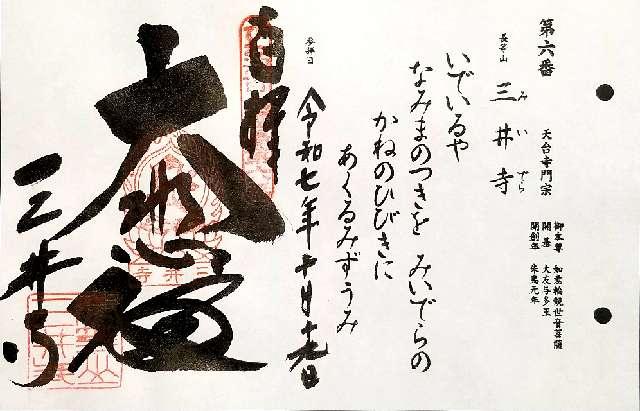 第六番
長等山
三井寺
みいでら
天台寺門宗
御本尊 如意輪観世音菩薩
開基 大友与多王
開創年 朱鳥元年
いでいるや
なみまのつきを みいでらの
かねのひびきに
あくるみずうみ
参拝日
令和七年十月十九日
奉拝
大悲殿
三井寺
三井寺